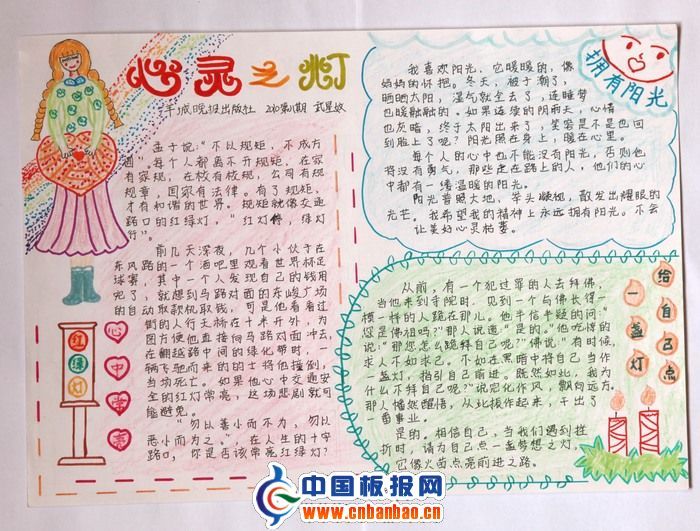 心灵之灯
羊城晚报出版社 2010第1期
孟子说:“不以规矩,不成方
圆”。每个人都离不开规矩,在家
有家规,在校有校规,公司有规
规章,国家有法律。有了规矩,
才有和谐的世界。规矩就像交通
路口的红绿灯,“红灯停,绿灯
行”。
前几天深夜,几个小伙子在
东风路的一个酒吧里观看世界杯足
球赛,其中一个人发现自己的钱用
呢了,就想到马路对面的东峻广场
的自动取款机取钱,可是他看看过
街的人行天桥在十米开外,为
图方便他直接向马路对面冲去,
在翻越路中间的绿化带时,一
辆飞驰而来的的士将他撞倒,
当场死亡。如果他心中交通安
全的红灯常亮,这场悲剧就可
能避免。
“勿以善小而不为,勿以
恶小而为之。”在人生的十字
路口,你是否该常亮红绿灯?
红
绿
灯
心
中
常
亮
拥有阳光
我喜欢阳光,它暖暖的,像
妈妈的怀抱。冬天,被子潮了,
晒晒太阳,湿气就全去了,连睡梦
也暖融融的。如果连续的阴雨天,心情
也灰暗,终于太阳出来了,笑容是不是也回
到脸上了呢?阳光照在身上,暖在心里。
每个人的心中也不能没有阳光,否则他
将没有勇气,那些走在路上的人,他们的心
中都有一缕温暖的阳光。
阳光普照大地,举头凝视,散发出耀眼的
光芒。我希望我的精神上永远拥有阳光。不会
让美好心灵枯萎。
给自己点
一盏灯
从前,有一个犯过罪的人去拜佛,
当他来到寺院时,见到一个与佛长得一
模一样的人跪在那儿。他半信半疑的问:“
您是佛祖吗?”那人说道:“是的。”他吃惊的
说:“那您怎么跪拜自己呢?”佛说:“有时候,
求人不如求己,不如在黑暗中将自己当作
一盏灯,指引自己前进。既然如此,我为
什么不拜自己呢?”说完化作风,飘向远方。
那人幡然醒悟,从此振作起来,干出了
一番事业。
是的。相信自己,当我们遇到挫
折时,请为自己点一盏梦想之灯,
它像火苗点亮前进之路。
中国板报网
www.cnbanbao.cn